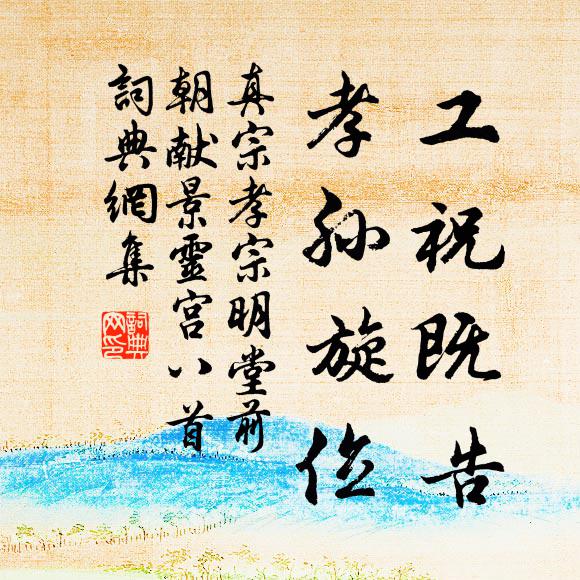 工祝既告
孝孙旋位
真宗孝宗明堂前
朝献景靈宫八首
詞典網集
詞典
网印